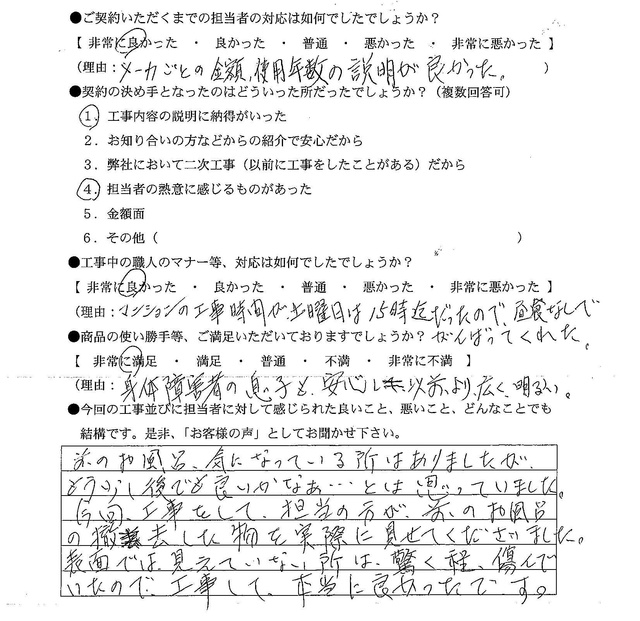 ●ご契約いただくまでの担当者の対応は如何でしたでしょうか？
【 非常に良かった ・ 良かった ・ 普通 ・ 悪かった ・ 非常に悪かった 】
（理由：メーカごとの金額、使用年数の説明が良かった。）
●契約の決め手となったのはどういった所だったでしょうか？（複数回答可）
1．工事内容の説明に納得がいった
2．お知り合いの方などからの紹介で安心だから
3．弊社において二次工事（以前に工事をしたことがある）だから
4．担当者の熱意に感じるものがあった
5．金額面
6．その他（ ）
●工事中の職人のマナー等、対応は如何でしたでしょうか？
【 非常に良かった ・ 良かった ・ 普通 ・ 悪かった ・ 非常に悪かった 】
（理由：マンションの工事時間が、土曜日は15時迄だったので、昼食なしで
●商品の使い勝手等、ご満足いただいておりますでしょうか？ がんばってくれた。
【 非常に満足 ・ 満足 ・ 普通 ・ 不満 ・ 非常に不満 】
（理由：身体障害者の息子も、安心し 以前より、広く、明るい。
●今回の工事並びに担当者に対して感じられた良いこと、悪いこと、どんなことでも
結構です。是非、「お客様の声」としてお聞かせ下さい。
お風呂、気になっている所はありましたが、
もう少し後でも良いかなぁ…とは思っていました。
今回、工事をして、担当の方が、 お風呂
の撤去した物を実際に見せてくださいました。
表面では見えていない所は、驚く程、傷んで
いたので、工事して、本当に良かったです。